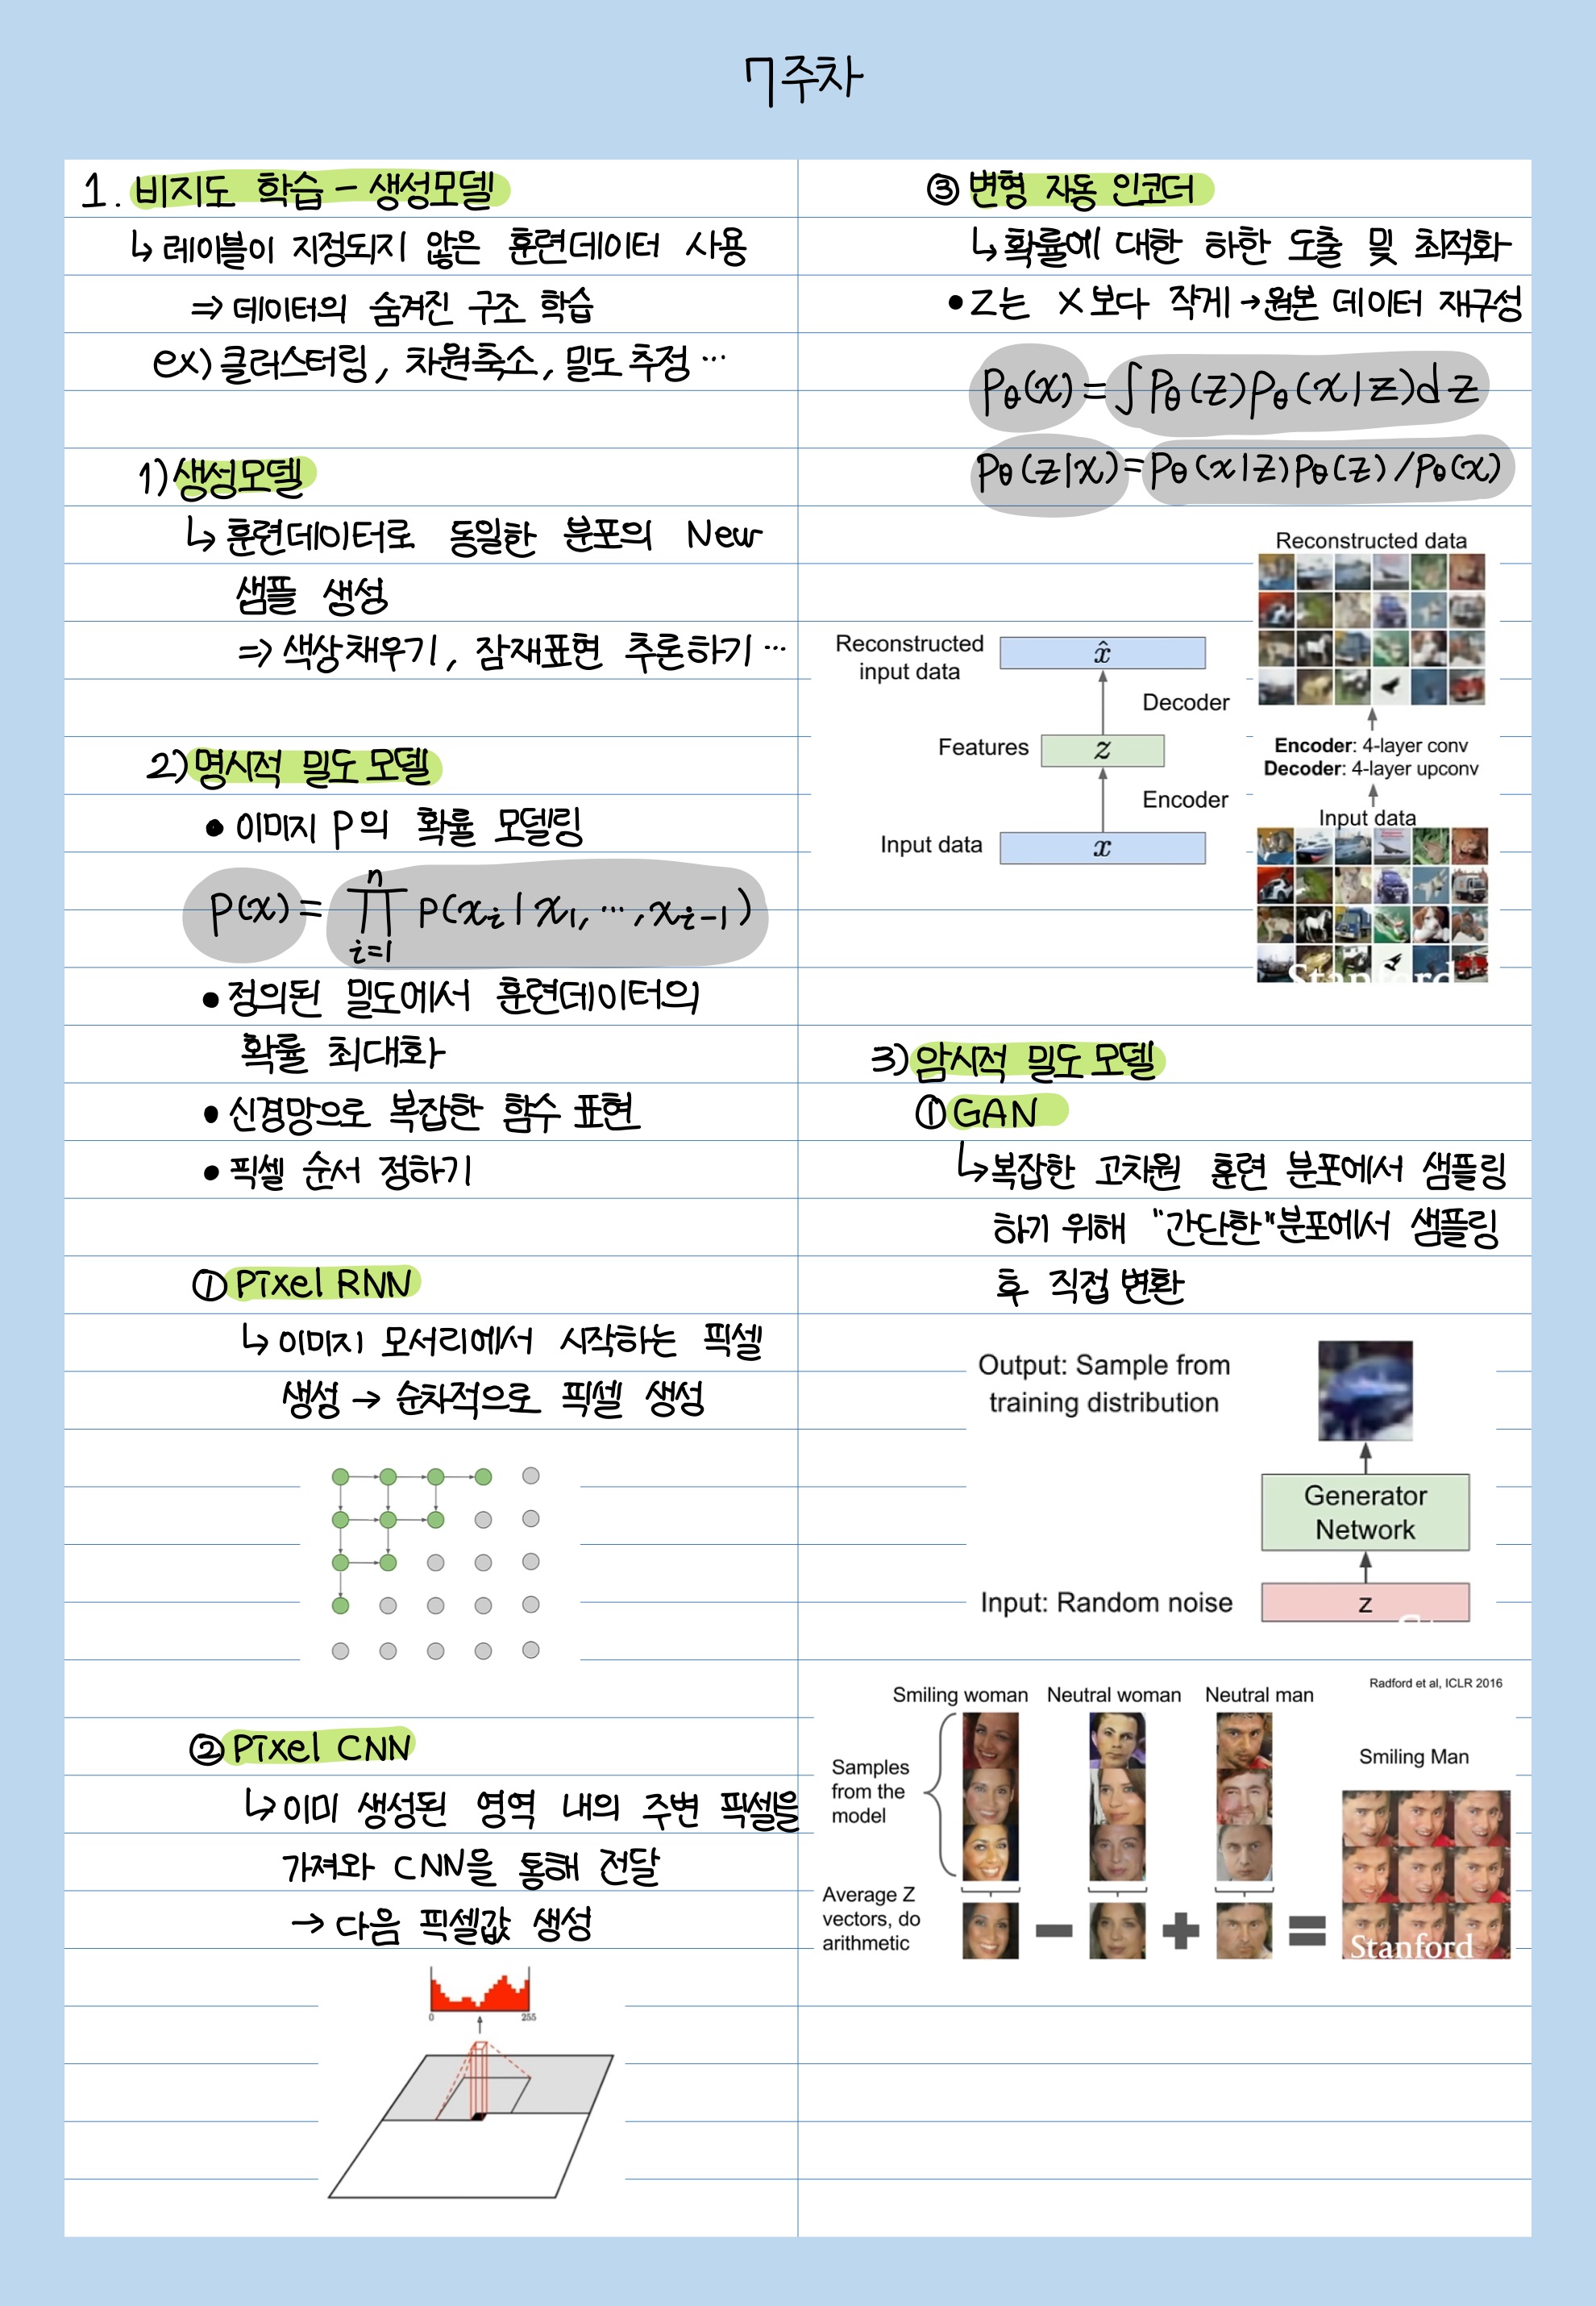 7주차
1. 비지도 학습 - 생성모델
↳ 레이블이 지정되지 않은 훈련데이터 사용
⇒ 데이터의 숨겨진 구조 학습
ex) 클러스터링, 차원축소, 밀도 추정 …
1) 생성모델
↳ 훈련데이터로 동일한 분포의 New
샘플 생성
⇒ 색상채우기, 잠재표현 추론하기 …
2) 명시적 밀도 모델
• 이미지 P의 확률 모델링
p(x) = ∏ⁿᵢ₌₁ p(xᵢ | x₁, …, xᵢ₋₁)
• 정의된 밀도에서 훈련데이터의
확률 최대화
• 신경망으로 복잡한 함수 표현
• 픽셀 순서 정하기
① Pixel RNN
↳ 이미지 모서리에서 시작하는 픽셀
생성 → 순차적으로 픽셀 생성
② Pixel CNN
↳ 이미 생성된 영역 내의 주변 픽셀을
가져와 CNN을 통해 전달
→ 다음 픽셀값 생성
0 255
③ 변형 자동 인코더
↳ 확률에 대한 하한 도출 및 최적화
• Z는 X보다 작게 → 원본 데이터 재구성
Pθ(x) = ∫ Pθ(z) Pθ(x|z) dz
Pθ(z|x) = Pθ(x|z) Pθ(z) / Pθ(x)
Reconstructed input data
x̂
Decoder
Features
z
Encoder
Input data
x
Reconstructed data
Encoder: 4-layer conv
Decoder: 4-layer upconv
Input data
Stanford
3) 암시적 밀도 모델
① GAN
↳ 복잡한 고차원 훈련 분포에서 샘플링
하기 위해 "간단한" 분포에서 샘플링
후 직접 변환
Output: Sample from
training distribution
Generator
Network
Input: Random noise
z
Radford et al, ICLR 2016
Smiling woman Neutral woman Neutral man
Smiling Man
Samples
from the
model
Average Z
vectors, do
arithmetic
Stanford